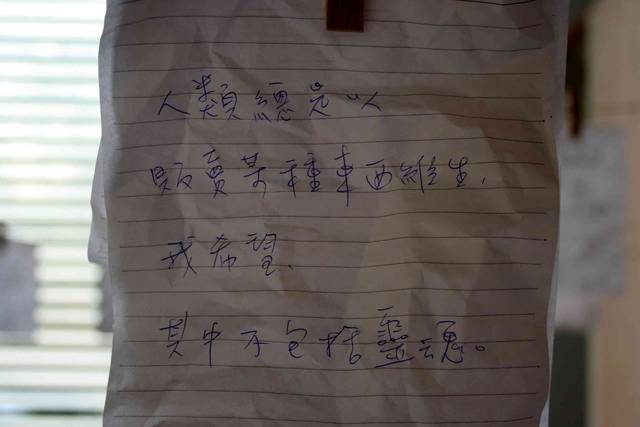 人類總是以
販賣某種東西維生,
我希望、
其中不包括靈魂。